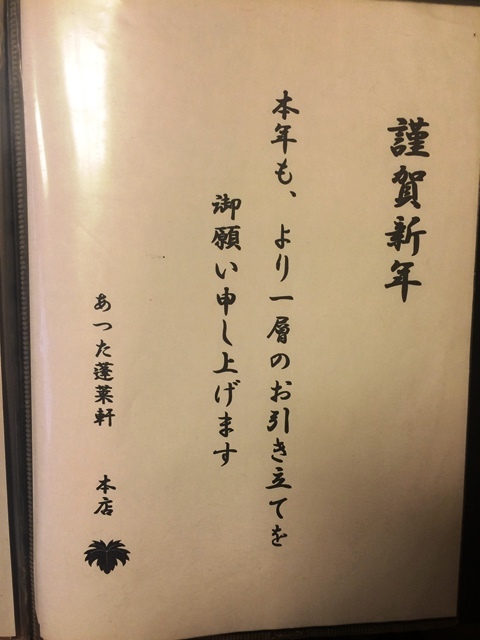 謹賀新年
本年も、より一層のお引き立てを
御願い申し上げます
あつた蓬莱軒 本店